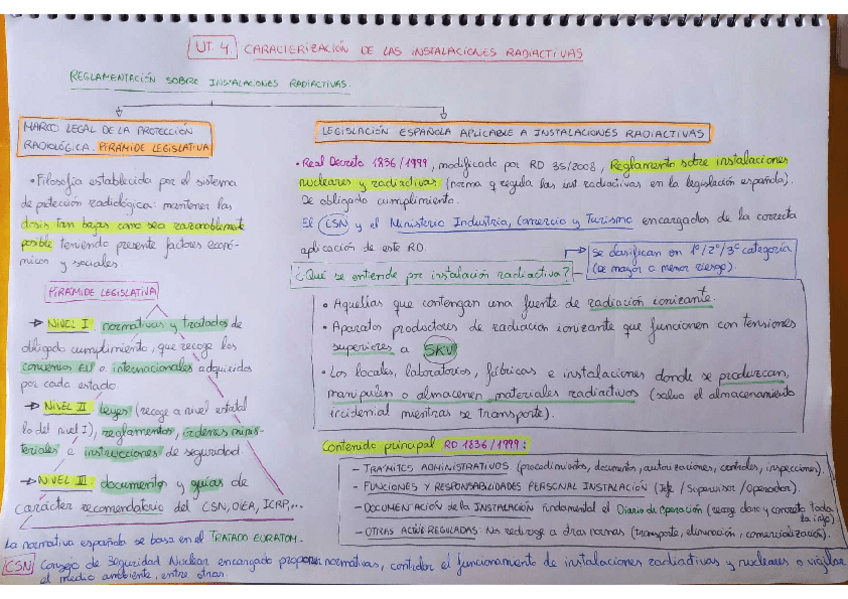 UT. 4. CARACTERIZACIÓN DE LAS INSTALACIONES RADIACTIVAS
REGLAMENTACIÓN SOBRE INSTALACIONES RADIACTIVAS.
MARCO LEGAL DE LA PROTECCIÓN
RADIOLÓGICA. PIRÁMIDE LEGISLATIVA
• Filosofía establecida por el sistema
de protección radiológica: mantener las
dosis tan bajas como sea razonablemente
posible teniendo presente factores econó-
micos y sociales.
PIRÁMIDE LEGISLATIVA
→ NIVEL I normativas y tratados de
obligado cumplimiento, que recoge los
convenios EU o internacionales adquiridos
por cada estado
→ NIVEL II leyes (recoge a nivel estatal
lo del nivel I), reglamentos, órdenes minis-
teriales e instrucciones de seguridad
→ NIVEL III documentos y guías de
carácter recomendatorio del CSN, OIEA, ICRP,...
La normativa española se basa en el TRATADO EURATOM.
LEGISLACIÓN ESPAÑOLA APLICABLE A INSTALACIONES RADIACTIVAS
• Real Decreto 1836/1999, modificado por RD 35/2008, Reglamento sobre instalaciones
nucleares y radiactivas (norma q regula las inst radiactivas en la legislación española).
De obligado cumplimiento.
El CSN y el Ministerio Industria, Comercio y Turismo encargados de la correcta
aplicación de este RD.
Se clasifican en 1ª/2ª/3ª categoría
(de mayor a menor riesgo).
¿Qué se entiende por instalación radiactiva?
• Aquellas que contengan una fuente de radiación ionizante.
• Aparatos productores de radiación ionizante que funcionen con tensiones
superiores a 5KV
• Los locales, laboratorios, fábricas e instalaciones donde se produzcan,
manipulen o almacenen materiales radiactivos (salvo el almacenamiento
incidental mientras se transporte).
Contenido principal RD 1836/1999:
- TRÁMITES ADMINISTRATIVOS (procedimientos, documentos, autorizaciones, controles, inspecciones).
- FUNCIONES Y RESPONSABILIDADES PERSONAL INSTALACIÓN (Jefe / Supervisor / Operador).
- DOCUMENTACIÓN de la INSTALACIÓN Fundamental el Diario de Operación (recoge claro y concreto toda
la info)
- OTRAS ACTIV. REGULADAS: Nos redirige a otras normas (transporte, eliminación, comercialización).
CSN Consejo de Seguridad Nuclear encargado proponer normativas, controlar el funcionamiento de instalaciones radiactivas y nucleares o vigilar
el medio ambiente, entre otras.